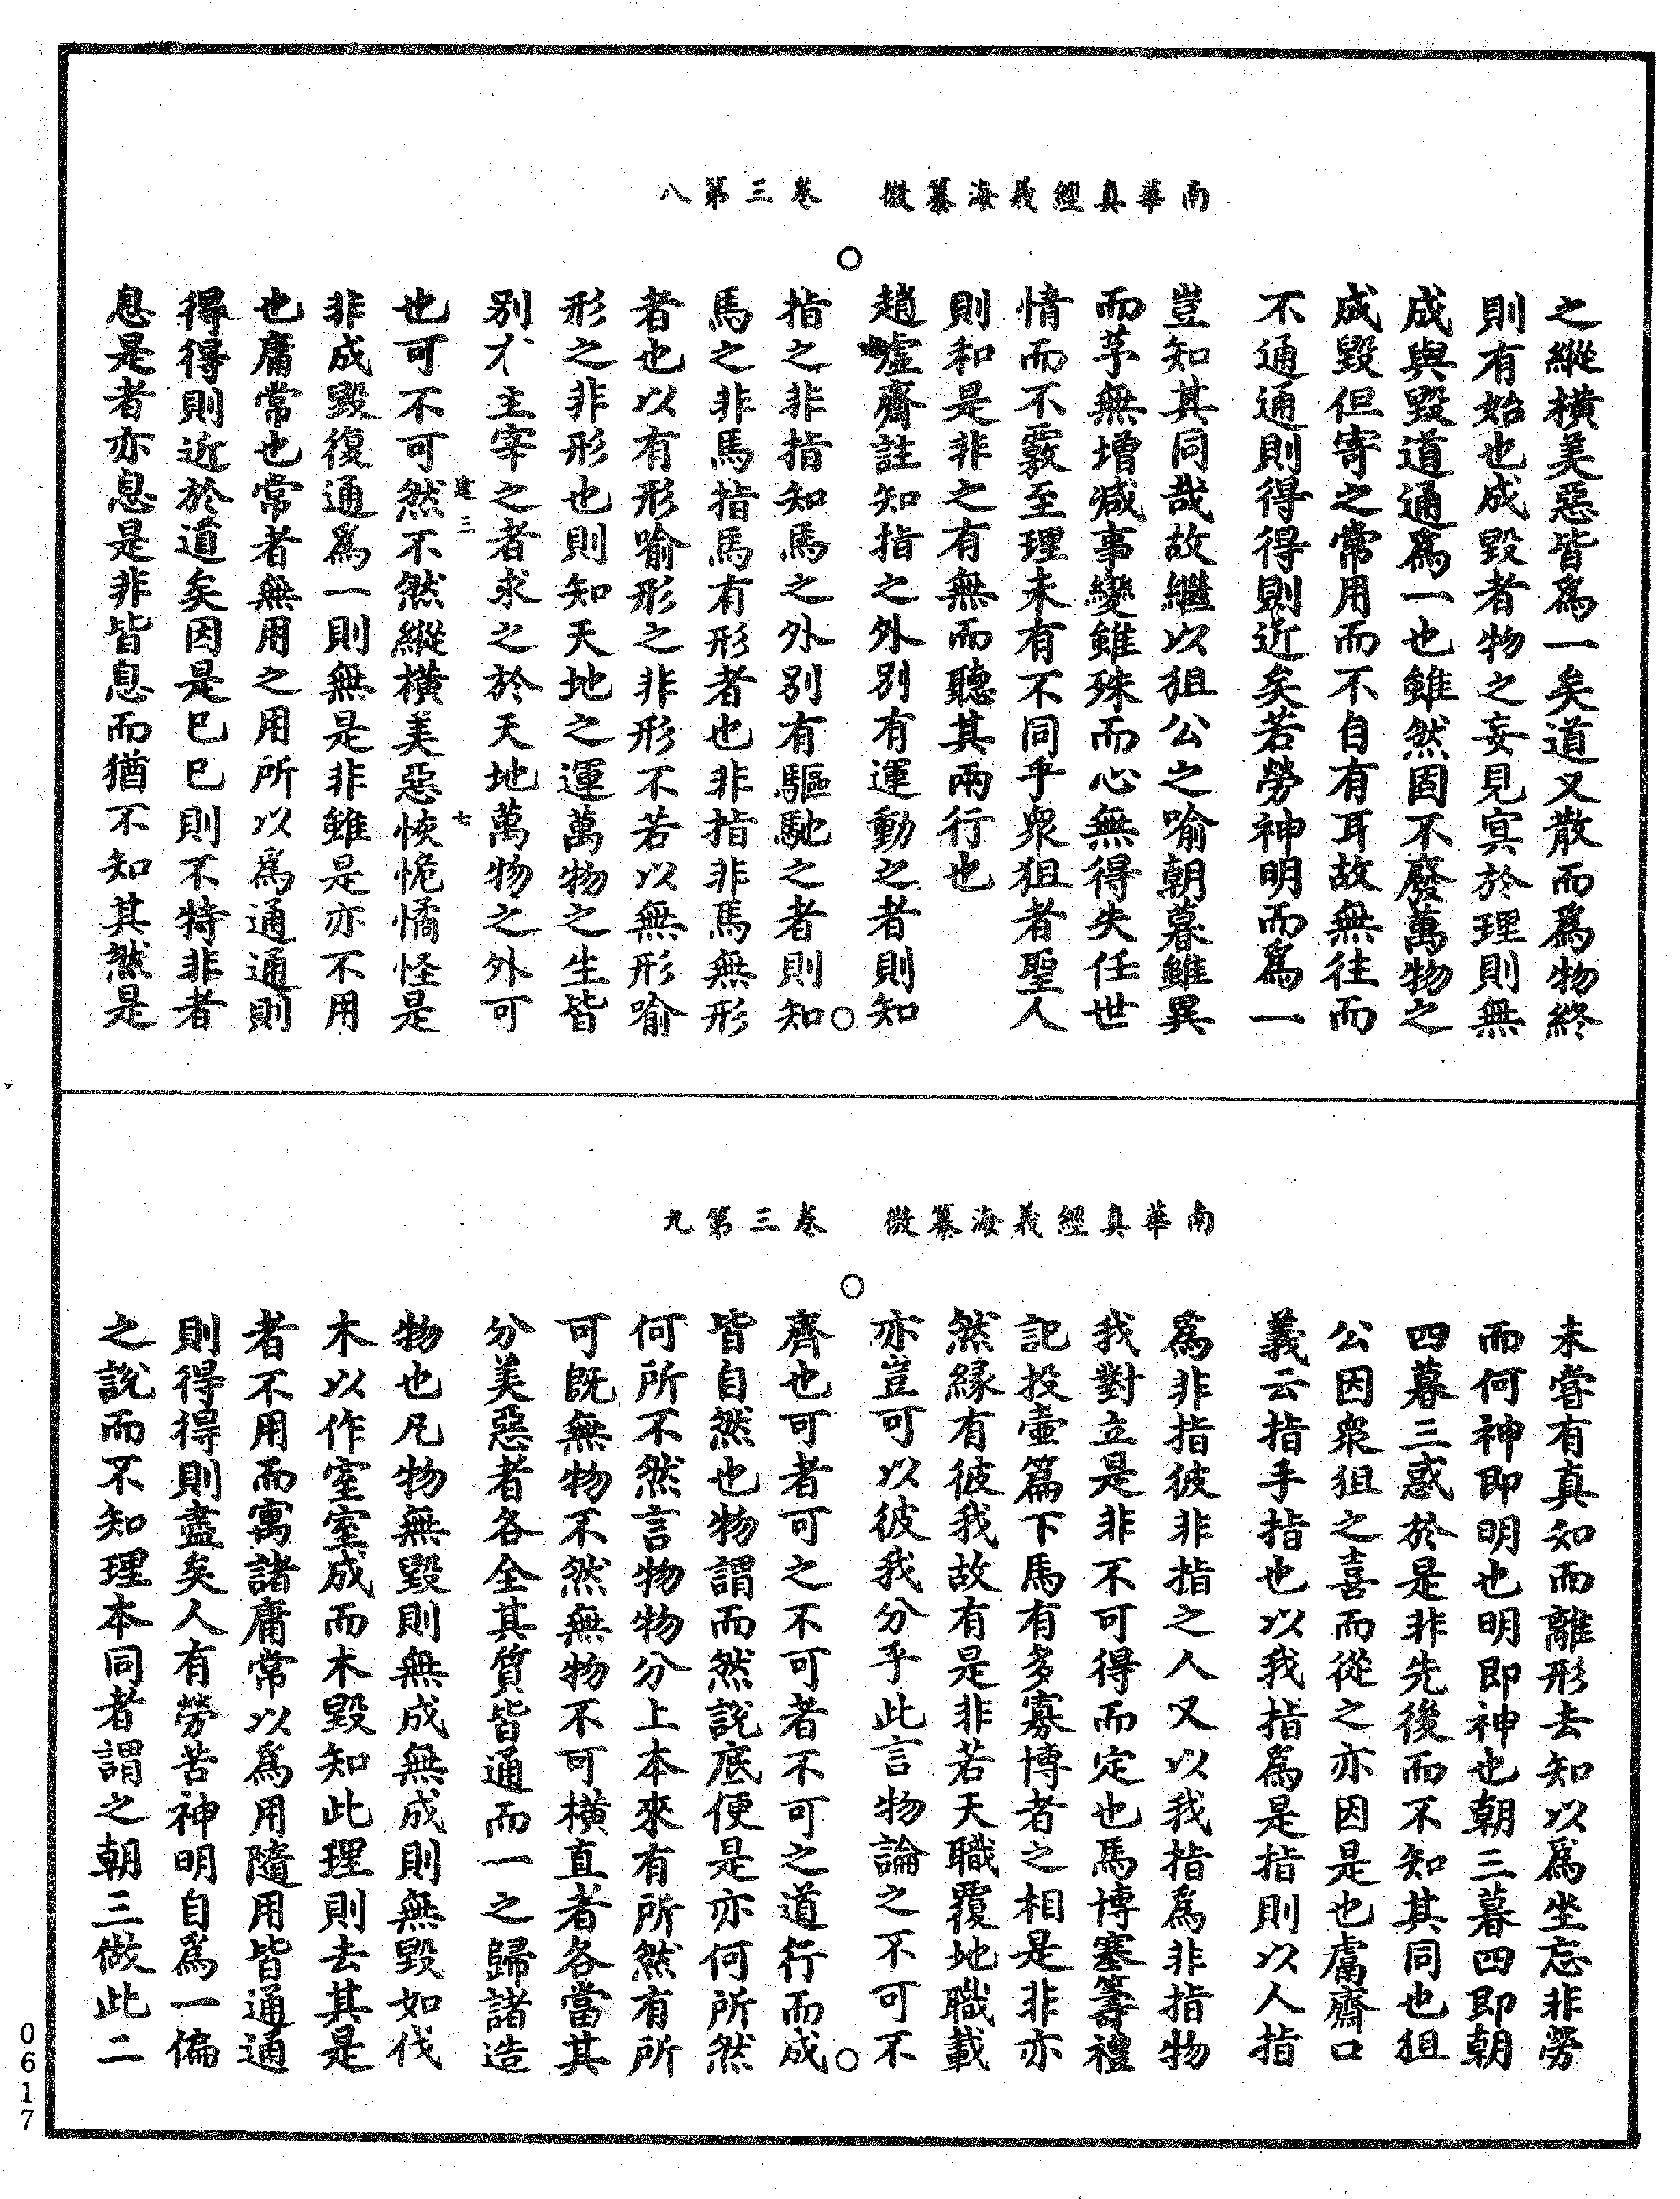 南華真經義海纂微　卷三第八
之縱橫美惡皆爲一矣道又散而爲物終
則有始也成毀者物之妄見冥於理則無
成與毀道通爲一也雖然固不廢萬物之
成毀但寄之常用而不自有耳故無往而
不通通則得得則近矣若勞神明而爲一
豈知其同哉故繼以狙公之喻朝暮雖異
而芧無增減事變雖殊而心無得失任世
情而不覈至理未有不同乎衆狙者聖人
則和是非之有無而聽其兩行也
趙虛齋註知指之外別有運動之者則知
指之非指知馬之外別有驅馳之者則知
馬之非馬指馬有形者也非指非馬無形
者也以有形喻形之非形不若以無形喻
形之非形也則知天地之運萬物之生皆
別有主宰之者求之於天地萬物之外可
建三　七
也可不可然不然縱橫美惡恢恑憰怪是
非成毀復通爲一則無是非雖是亦不用
也庸常也常者無用之用所以爲通通則
得得則近於道矣因是已已則不特非者
息是者亦息是非皆息而猶不知其然是
南華真經義海纂微　卷三第九
未嘗有真知而離形去知以爲坐忘非勞
而何神即明也明即神也朝三暮四即朝
四暮三惑於是非先後而不知其同也狙
公因衆狙之喜而從之亦因是也鬳齋口
義云指手指也以我指爲是指則以人指
爲非指彼非指之人又以我指爲非指物
我對立是非不可得而定也馬博塞籌禮
記投壺篇下馬有多寡博者之相是非亦
然緣有彼我故有是非若天職覆地職載
亦豈可以彼我分乎此言物論之不可不
齊也可者可之不可者不可之道行而成
皆自然也物謂而然說底便是亦何所然
何所不然言物物分上本來有所然有所
可既無物不然無物不可橫直者各當其
分美惡者各全其質皆通而一之歸諸造
物也凡物無毀則無成無成則無毀如伐
木以作室室成而木毀知此理則去其是
者不用而寓諸庸常以爲用隨用皆通通
則得得則盡矣人有勞苦神明自爲一偏
之說而不知理本同者謂之朝三做此二
0617